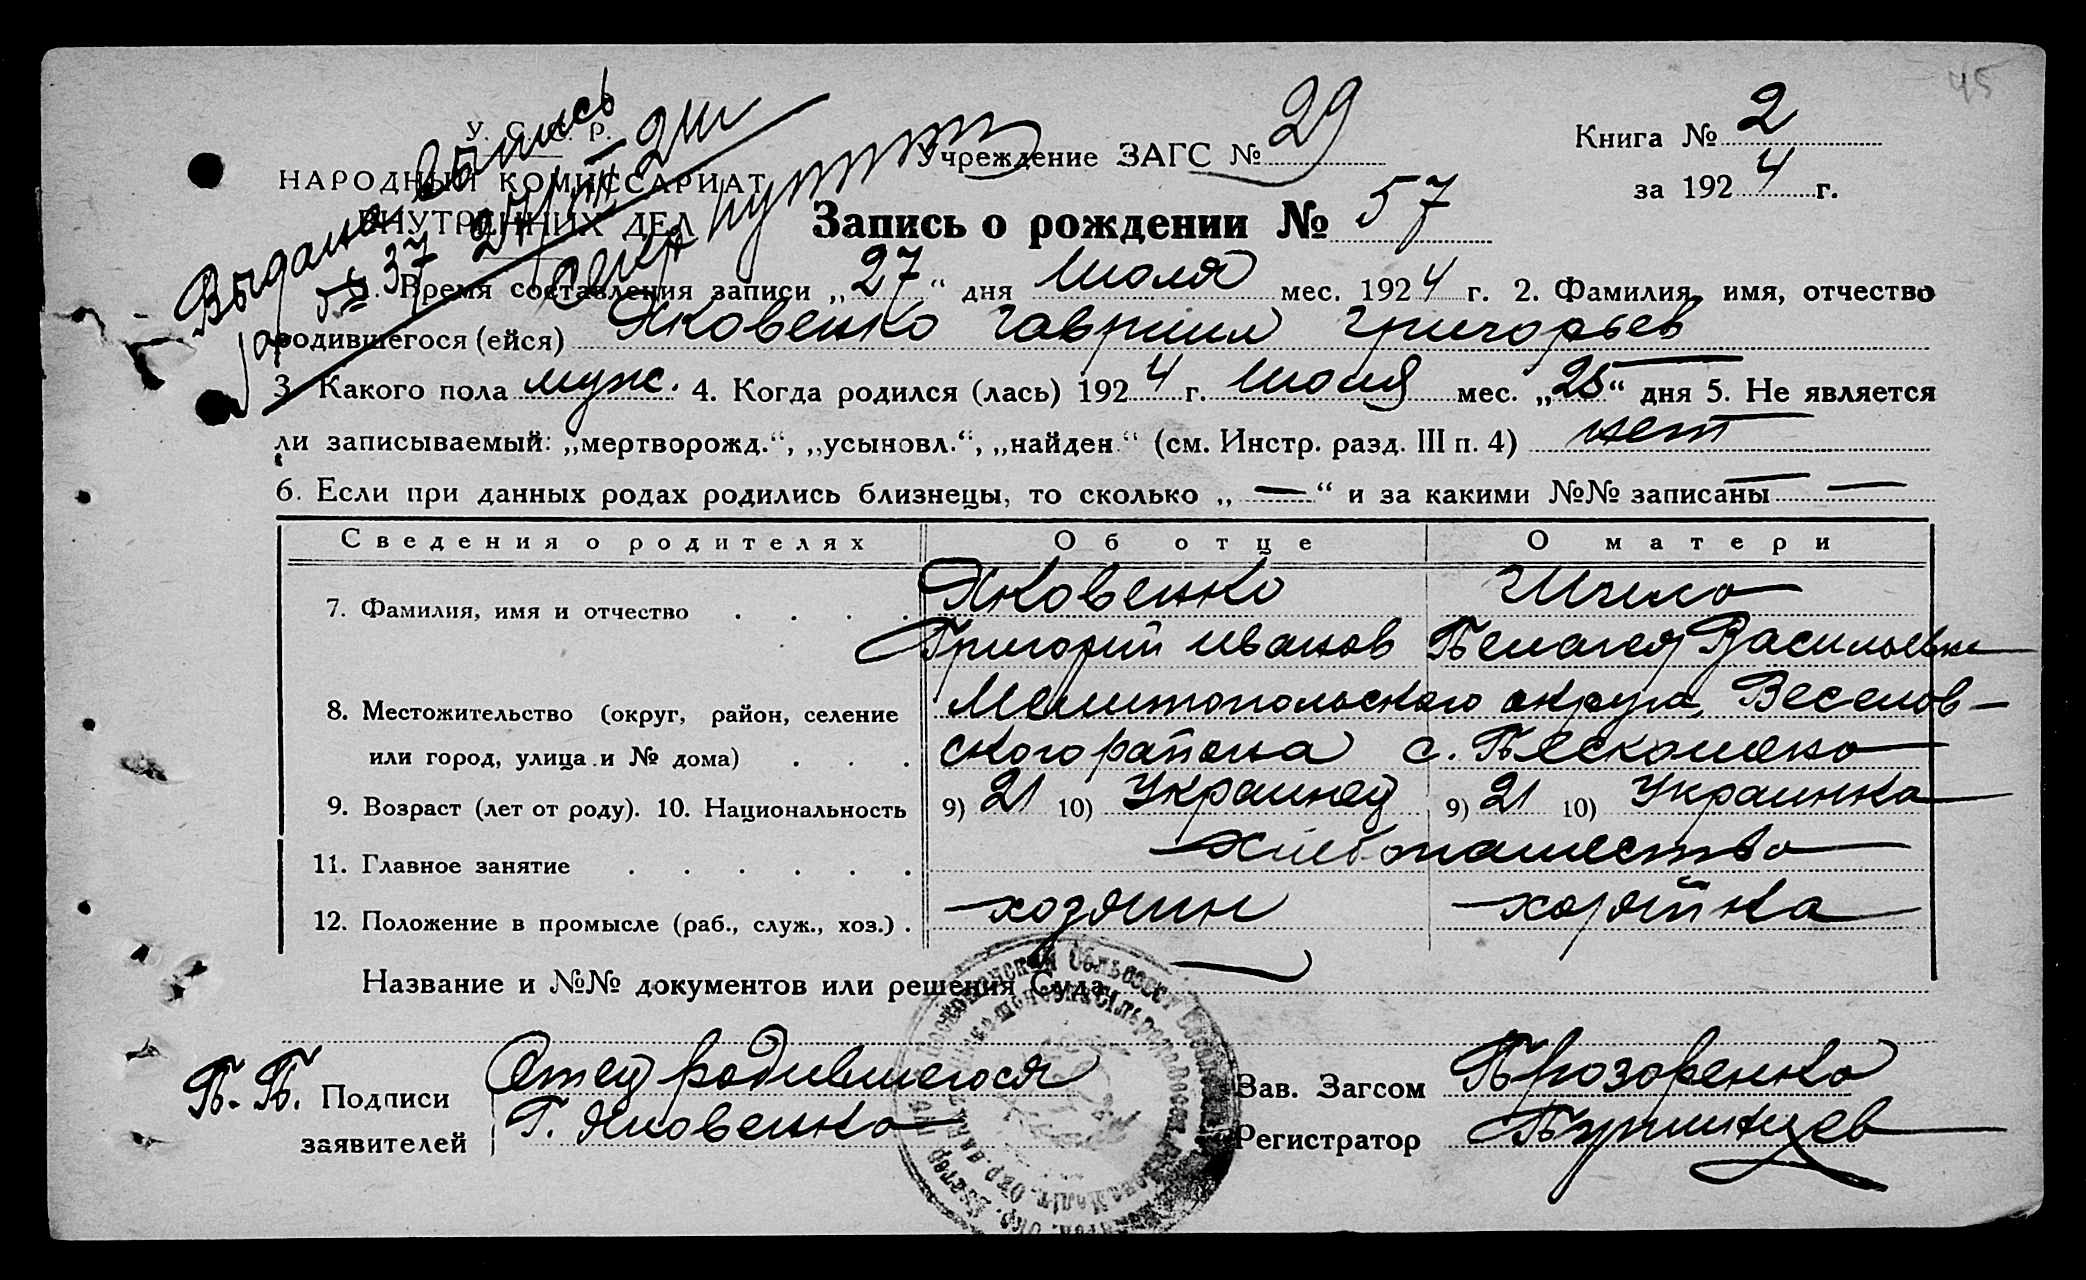 45
У. С. С. Р.
НАРОДНЫЙ КОМИССАРИАТ
ВНУТРЕННИХ ДЕЛ
Выдана выпись
за № 37
Учреждение ЗАГС № 29
Книга № 2
за 1924 г.
Запись о рождении № 57
1. Время составления записи „27“ дня Июля мес. 1924 г. 2. Фамилия, имя, отчество
родившегося (ейся) Яковенко Гавриил Григорьев
3. Какого пола муж. 4. Когда родился (лась) 1924 г. Июля мес. „25“ дня 5. Не является
ли записываемый: „мертворожд.“, „усыновл.“, „найден.“ (см. Инстр. разд. III п. 4) нет
6. Если при данных родах родились близнецы, то сколько „—“ и за какими №№ записаны —
Сведения о родителях Об отце О матери
7. Фамилия, имя и отчество . . . . Яковенко
Григорий Иванов Пелагея Васильевна
8. Местожительство (округ, район, селение Мелитопольского округа, Веселов-
или город, улица и № дома) . . . ского района с. Песчомено
9. Возраст (лет от роду). 10. Национальность 9) 21 10) Украинец 9) 21 10) Украинка
11. Главное занятие . . . . . . хлебопашество
12. Положение в промысле (раб., служ., хоз.) . хозяин хозяйка
Название и №№ документов или решения Суда
П. П. Подписи Отец родившегося Зав. Загсом Прозоренко
заявителей Г. Яковенко Регистратор